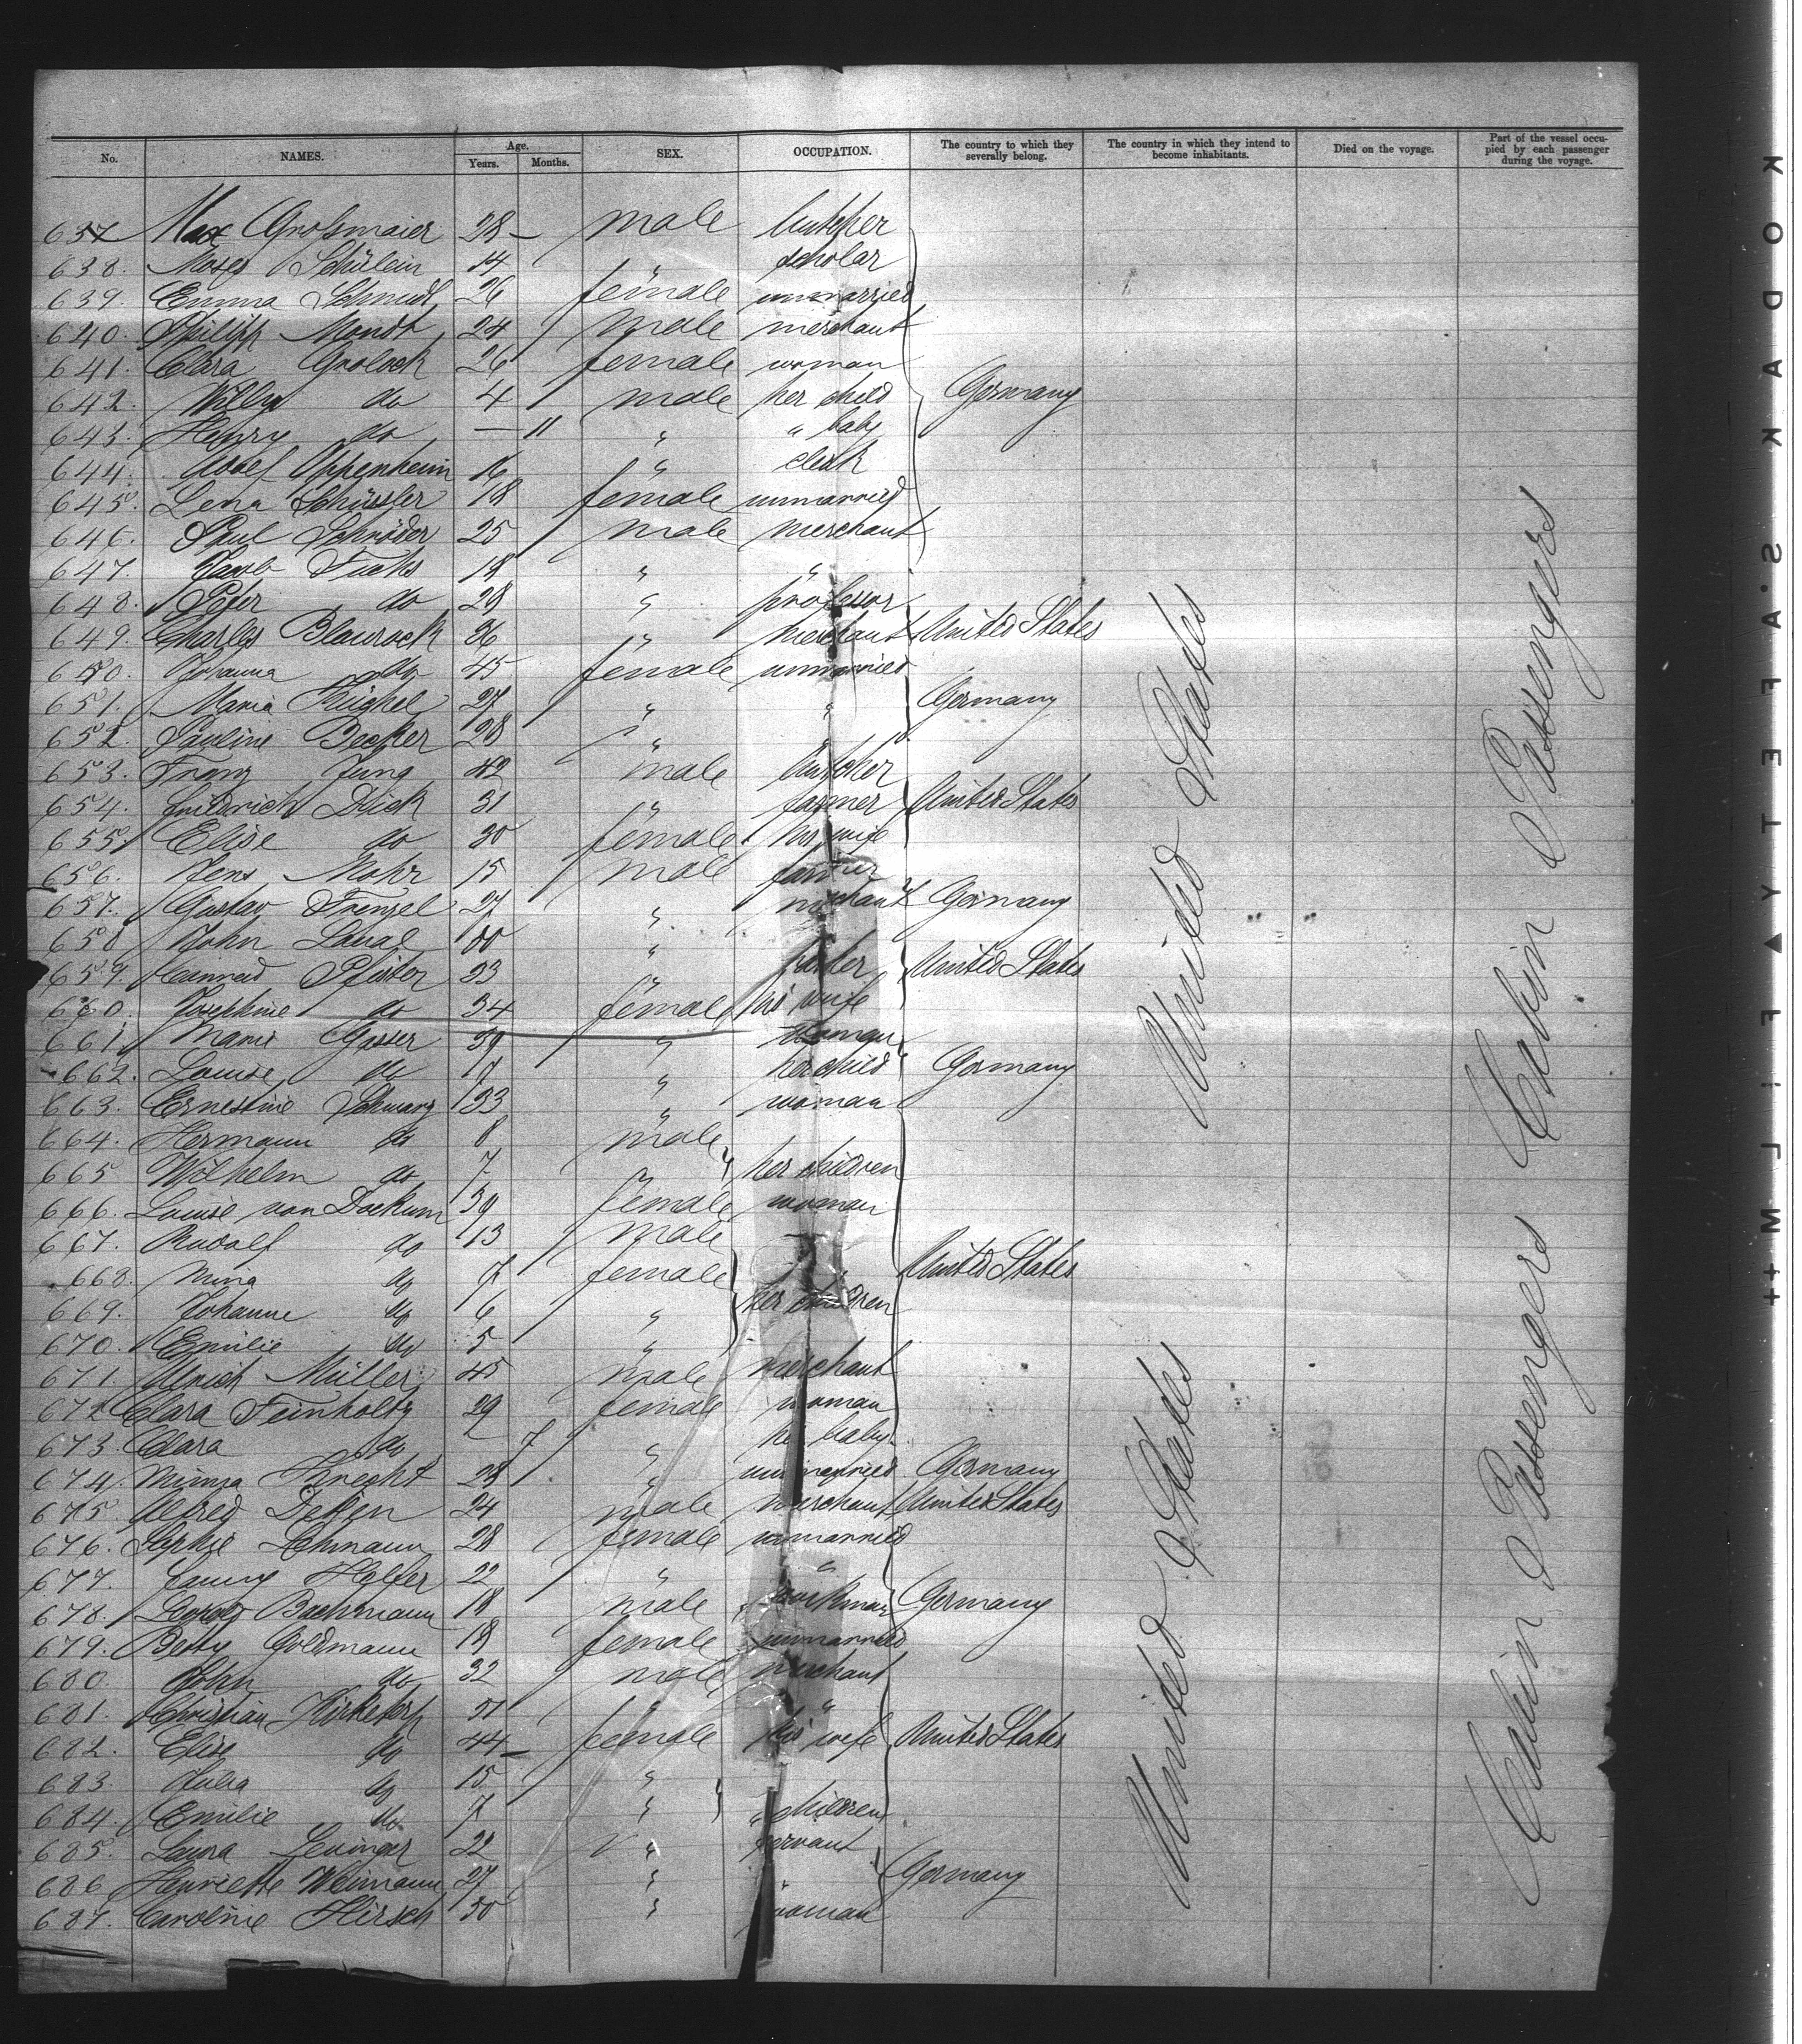 No. NAMES. Age. Years. Months. SEX. OCCUPATION. The country to which they severally belong. The country in which they intend to become inhabitants. Died on the voyage. Part of the vessel occupied by each passenger during the voyage.
637 Max Großmaier 28 – male butcher
638. Moses Schülein 14 " scholar
639. Emma Schmidt 26 female unmarried
640. Philipp Mondt 24 male merchant
641. Clara Grolock 26 female woman
642. Willy do 4 male her child Germany
643. Henry do — 11 " " baby
644. Adolf Oppenheim 16 " clerk
645. Lena Schüssler 18 female unmarried
646. Paul Schröder 25 male merchant
647. Jacob Fuchs 18 " "
648. Peter do 28 " professor
649. Charles Blaurock 36 " merchant United States
650. Johanna do 45 female unmarried
651. Maria Heichel 27 " " Germany
652. Pauline Becker 28 "
653. Franz Jung 42 male butcher
654. Friedrich Dick 31 " farmer United States
655. Elise do 30 female his wife
656. Jens Mohr 15 male farmer
657. Gustav Frenzel 27 " merchant Germany
658 John "
659. Conrad Pfister 33 " United States
660. Josephine do 34 female his wife
661. Marie Gasser 39 " woman
662. Louise do 17 " her child Germany
663. Ernestine Schwarz 33 " woman
664. Hermann do 8 male
665 Wilhelm do 7 " her children
666. Louise van Dockum 39 female woman
667. Rudolf do 13 male
668. Mina do 7 female United States
669. Johanne do 6 " her children
670. Emilie do 5 "
671. Ulrich Müller 45 male merchant
672 Clara Feinholtz 29 female woman
673. Clara do 7 " her baby
674. Minna Knecht 28 " unmarried Germany
675. Alfred Detjen 24 male merchant United States
676. Sophie Lehmann 28 female unmarried
677. Fanny Helfer 22 " "
678. Leopold Bachmann 18 male workman Germany
679. Betty Goldmann 18 female unmarried
680. John do 32 male merchant
681. Christian Kirketerp 51 " "
682. Elise do 44 – female his wife United States
683. Julia do 15 "
684. Emilie do 7 " " children
685. Laura Levinger 22 " servant
686 Henriette Weimann 27 " " Germany
687. Caroline Hirsch 50 " woman
United States
United States
Cabin Passengers
Cabin Passengers
KODAK S'AFETY FILM